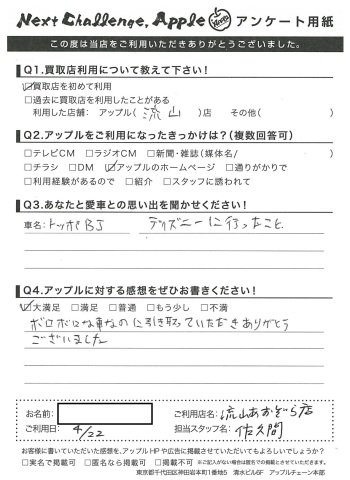 Next Challenge, Apple アンケート用紙
この度は当店をご利用いただきありがとうございました。
Q1.買取店利用について教えて下さい!
☑買取店を初めて利用
□過去に買取店を利用したことがある
利用した店舗: アップル( 流山 )店 その他( )
Q2.アップルをご利用になったきっかけは?(複数回答可)
□テレビCM □ラジオCM □新聞・雑誌(媒体名/ )
□チラシ □DM ☑アップルのホームページ □通りがかりで
□利用経験があるので □紹介 □スタッフに誘われて
Q3.あなたと愛車との思い出を聞かせてください!
車名:トッポBJ ディズニーに行ったこと
Q4.アップルに対する感想をぜひお書きください!
☑大満足 □満足 □普通 □もう少し □不満
ボロボロな車なのに引き取っていただきありがとう
ございました
お名前: ご利用店名:流山おおぞら店
ご利用日: 4/22 担当スタッフ名:佐久間
お客様に書いていただいた感想を、アップルHPや広告に掲載させていただいてもよろしいでしょうか?
□実名で掲載可 □匿名なら掲載可 □掲載不可 ※ご記入がない場合は匿名での掲載とさせていただきます。
東京都千代田区神田岩本町1番地5 清水ビル5F アップルチェーン本部